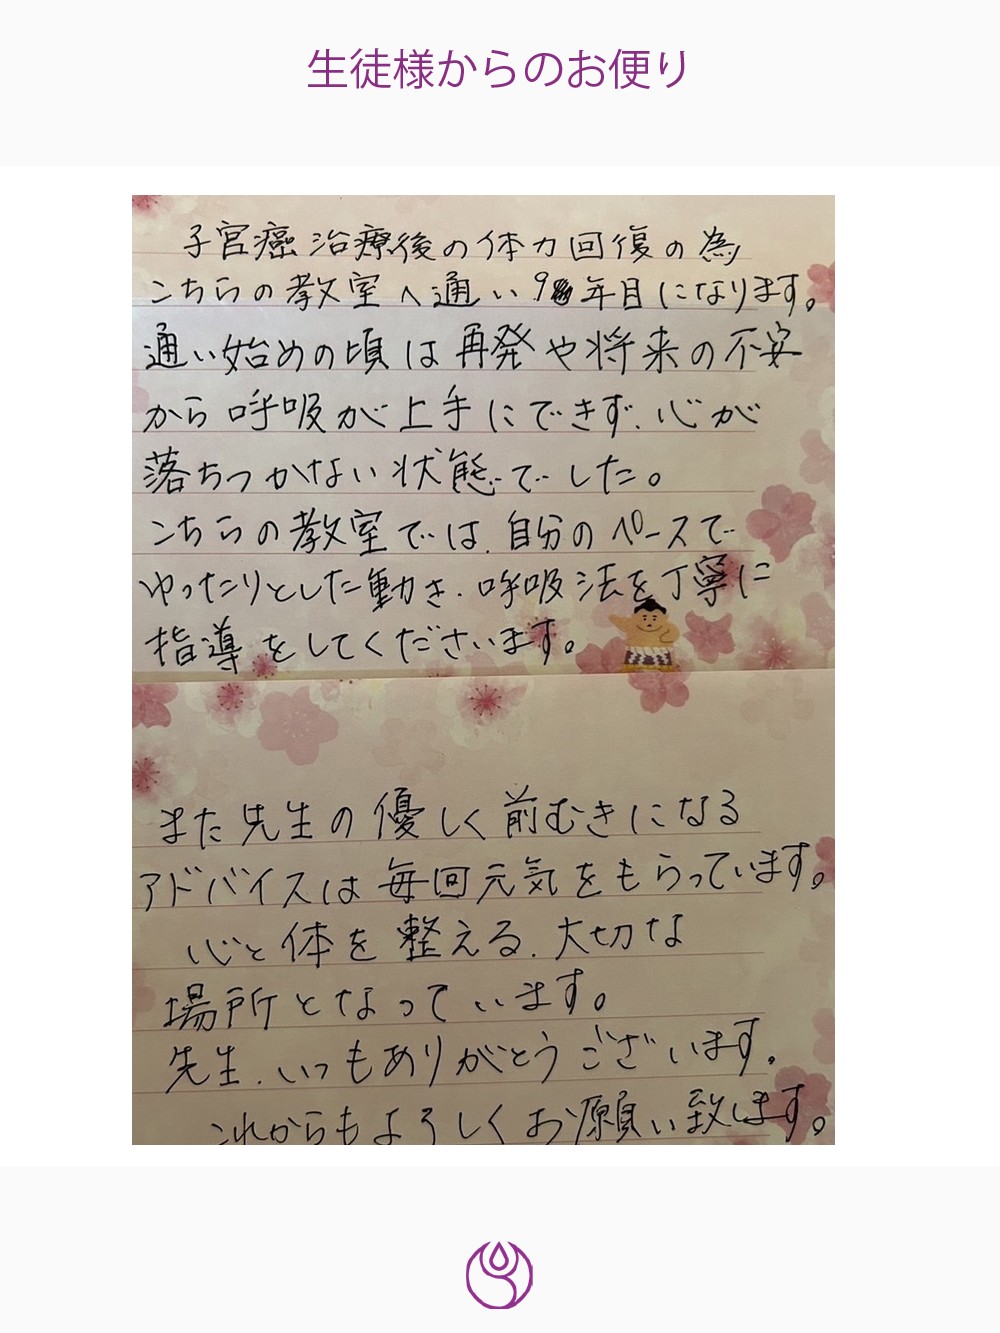 生徒様からのお便り
子宮癌治療後の体力回復の為
こちらの教室へ通い9年目になります。
通い始めの頃は再発や将来の不安
から呼吸が上手にできず、心が
落ちつかない状態でした。
こちらの教室では、自分のペースで
ゆったりとした動き、呼吸法を丁寧に
指導をしてくださいます。
また先生の優しく前むきになる
アドバイスは毎回元気をもらっています。
心と体を整える、大切な
場所となっています。
先生、いつもありがとうございます。
これからもよろしくお願い致します。